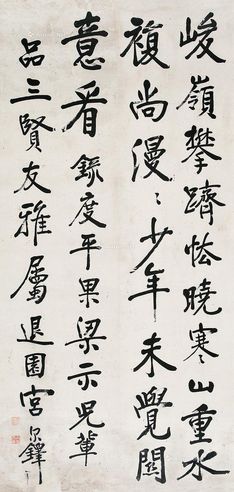 峻嶺攀躋怯曉寒山重水
複尚漫漫少年未覺關
意看錄度平果梁示兒輩
品三賢友雅屬退園宮尔鐸